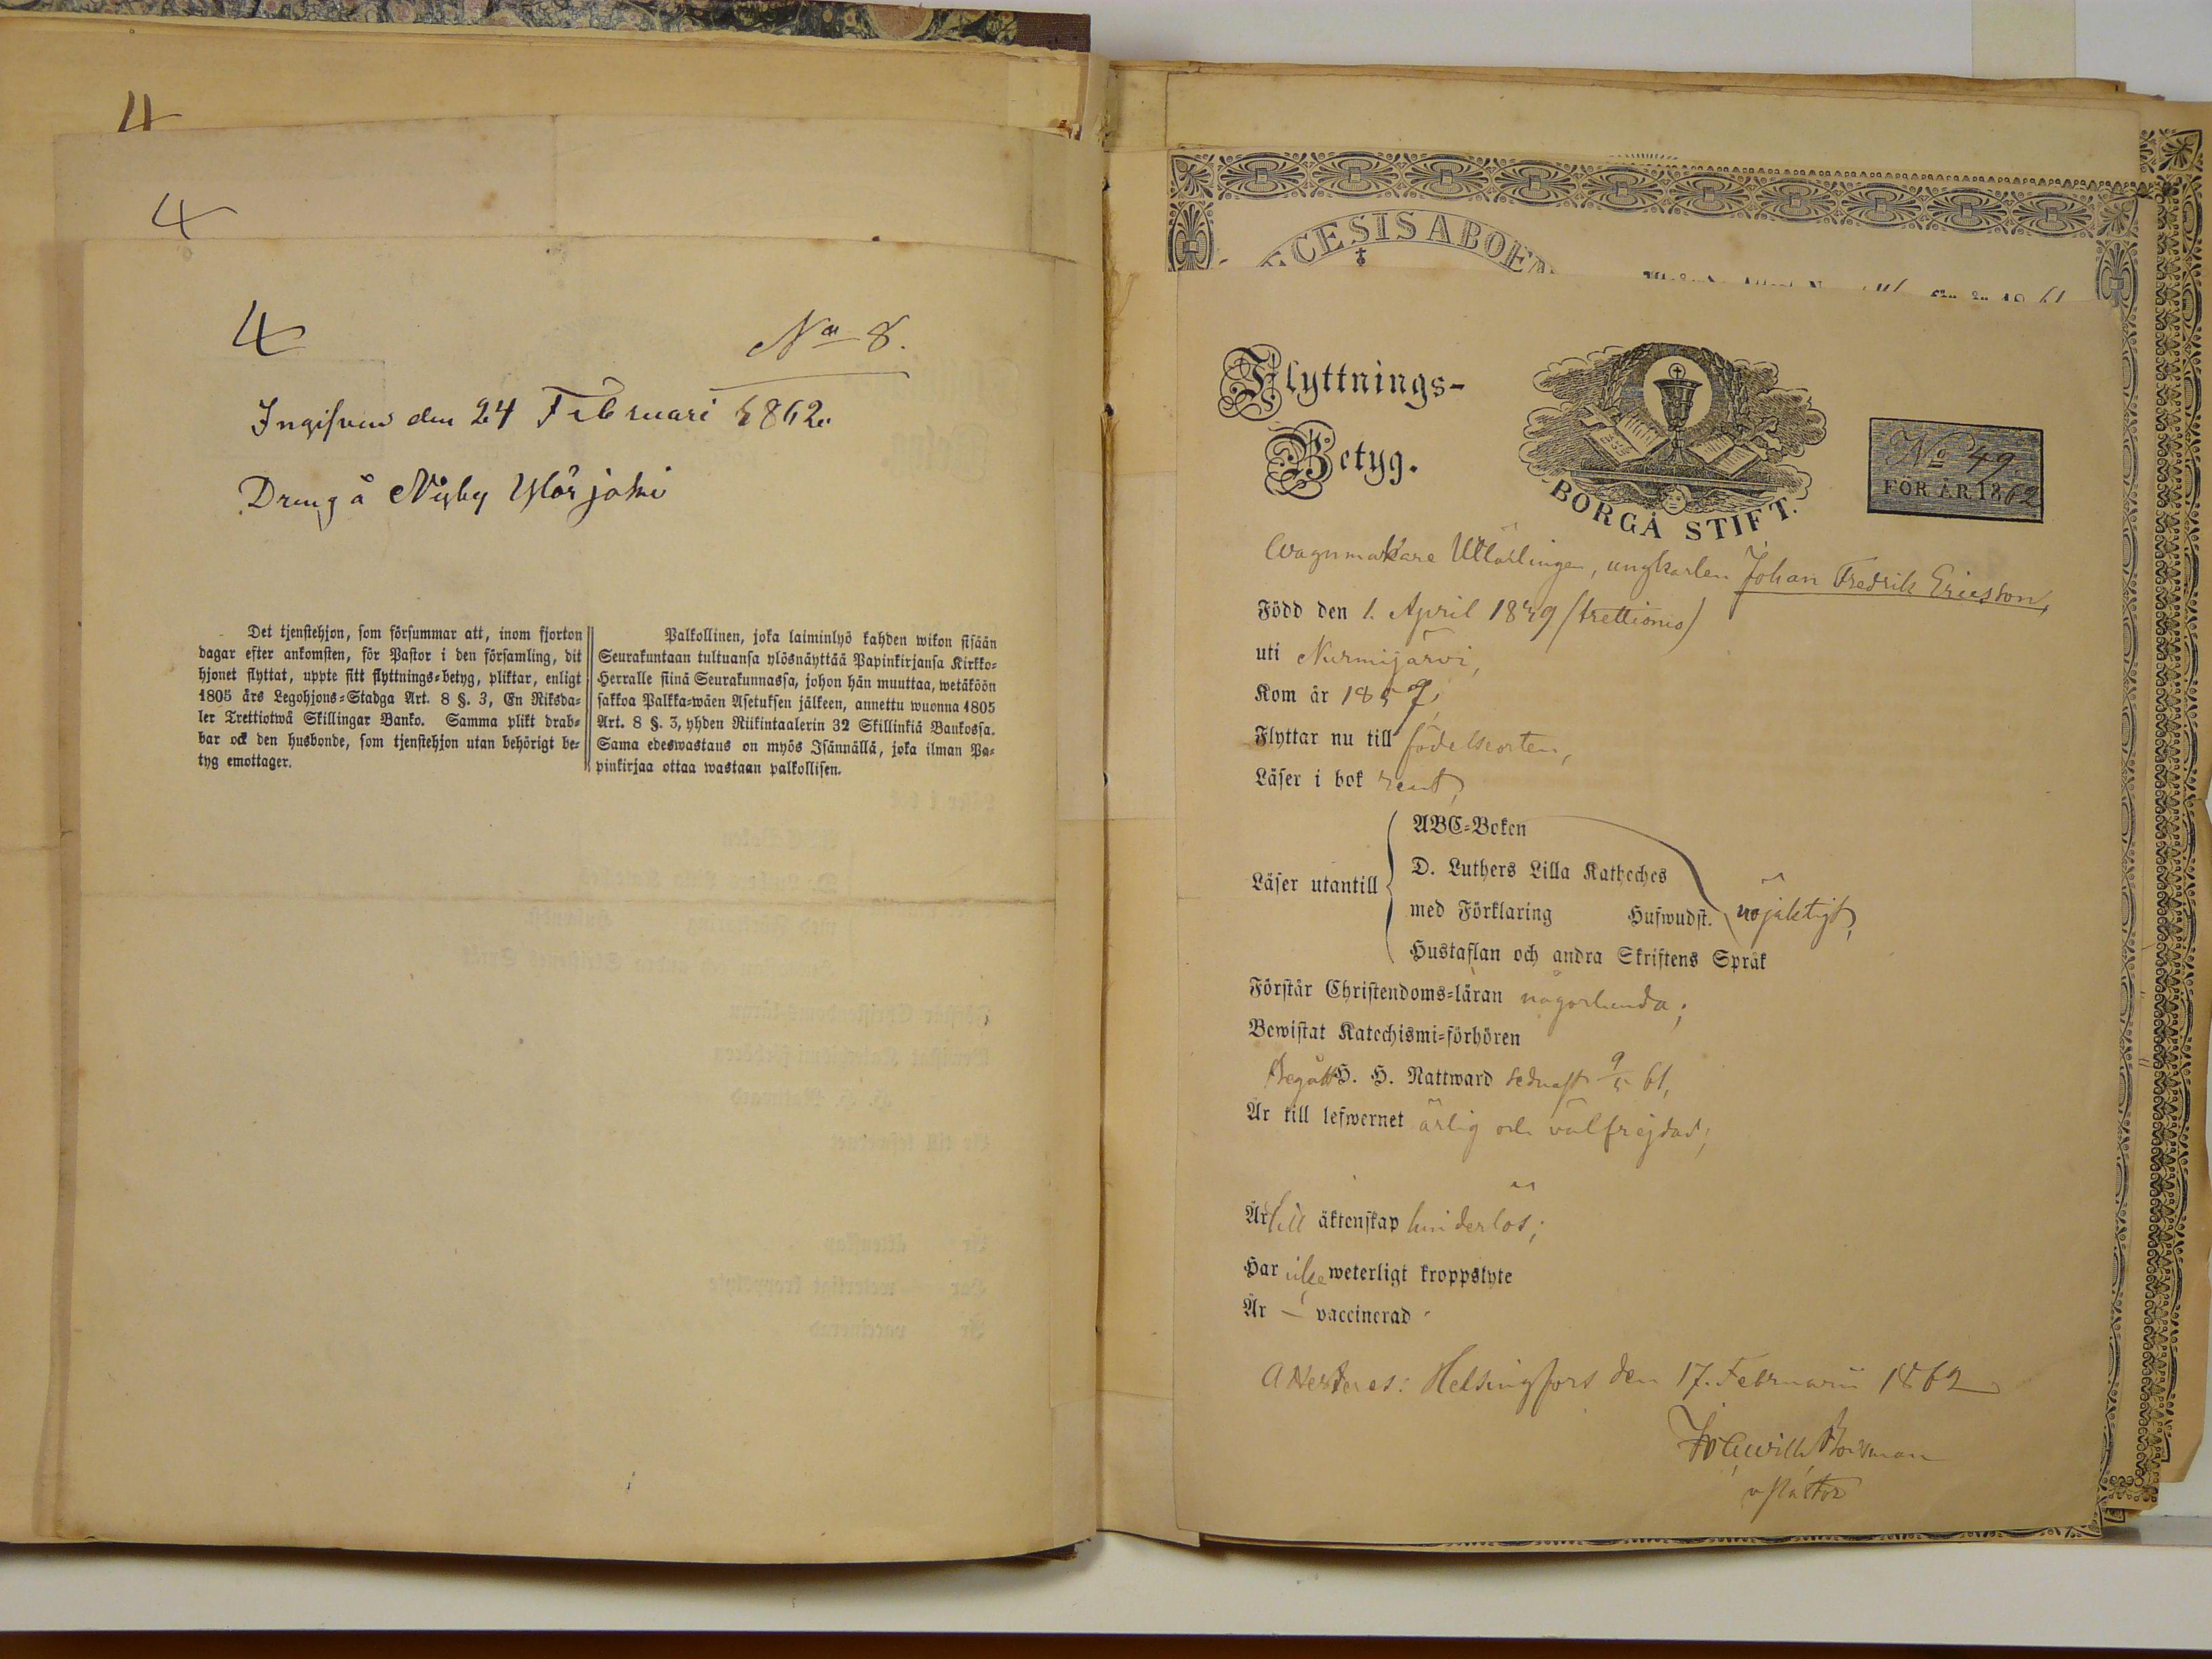 4
4
4
No 8.
Ingifven den 24 Februari 1862.
Dreng å Nyby Ylörjoki
Det tjenstehjon, som försummar att, inom fjorton
dagar efter ankomsten, för Pastor i den församling, dit
hjonet flyttat, uppte sitt flyttnings-betyg, pliktar, enligt
1805 års Legohjons-Stadga Art. 8 §. 3, En Riksda-
ler Trettiotwå Skillingar Banko. Samma plikt drab-
bar ock den husbonde, som tjenstehjon utan behörigt be-
tyg emottager.
Palkollinen, joka laiminlyö kahden wikon sisään
Seurakuntaan tultuansa ylösnäyttää Papinkirjansa Kirkko-
Herralle siinä Seurakunnassa, johon hän muuttaa, wetäköön
sakkoa Palkka-wäen Asetuksen jälkeen, annettu wuonna 1805
Art. 8 §. 3, yhden Riikintaalerin 32 Skillinkiä Bankossa.
Sama edeswastaus on myös Isännällä, joka ilman Pa-
pinkirjaa ottaa wastaan palkollisen.
ŒCESIS ABOEN
61
Flyttnings-
Betyg.
BORGÅ STIFT.
No 49.
FÖR ÅR 1862
Wagnmakare Utlärlingen, ungkarlen Johan Fredrik Ericsson,
Född den 1. April 1839 (trettionio)
uti Nurmijärvi,
Kom år 1857,
Flyttar nu till födelseorten,
Läser i bok rent,
Läser utantill
ABC-Boken
D. Luthers Lilla Katheches
med Förklaring Hufwudst. nöjaktigt,
Hustaflan och andra Skriftens Språk
Förstår Christendoms-läran någorlunda;
Bewistat Katechismi-förhören
Begått H. H. Nattward sednast 9/5 61,
Är till lefwernet ärlig och välfrejdad;
Är till äktenskap hinderlös;
Har icke weterligt kroppslyte
Är — vaccinerad
Attesteras: Helsingfors den 17. Februarii 1862
v Pastor